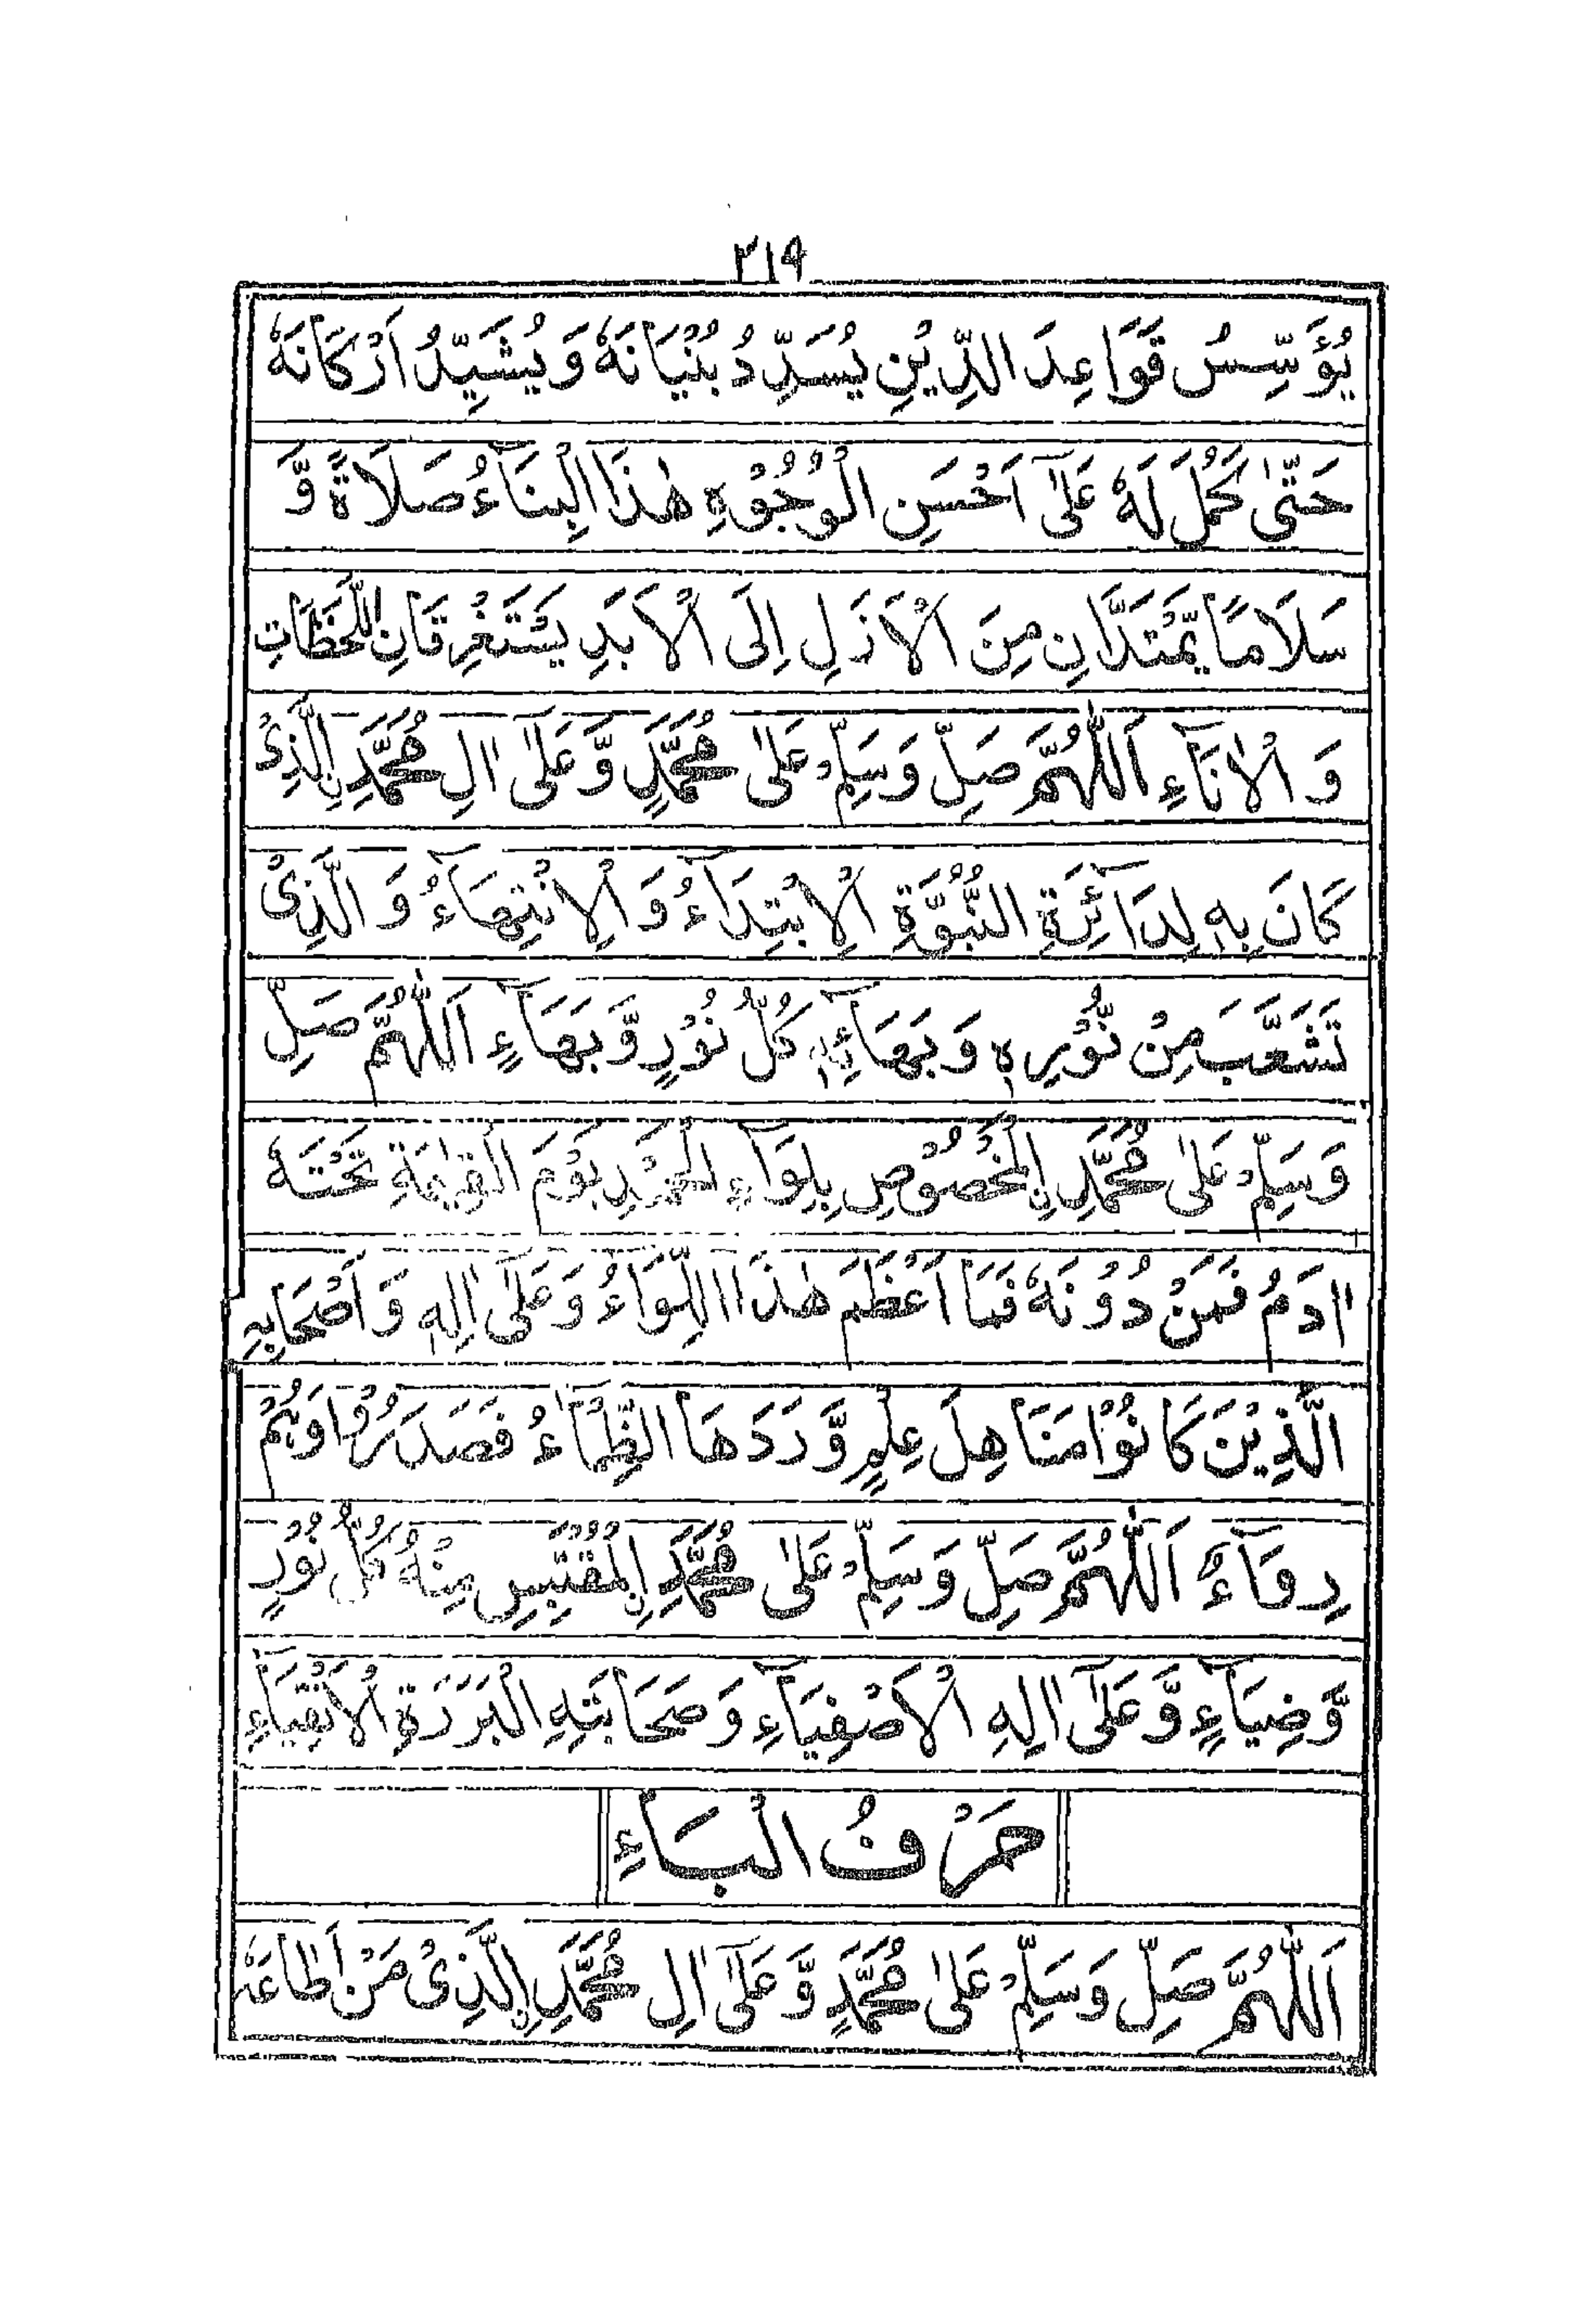 ٣١٩
يُؤَسِّسُ قَوَاعِدَ الدِّيْنِ يُسَدِّدُ بُنْيَانَهٗ وَيُشَيِّدُ اَرْكَانَهٗ
حَتّٰى كَمُلَ لَهٗ عَلٰٓى اَحْسَنِ الْوُجُوْهِ هٰذَا الْبِنَآءُ صَلَاةً وَّ
سَلَامًا يَّمْتَدَّانِ مِنَ الْاَزَلِ اِلَى الْاَبَدِ يَسْتَغْرِقَانِ اللَّحَظَاتِ
وَ الْاٰنَآءِ اَللّٰهُمَّ صَلِّ وَسَلِّمْ عَلٰى مُحَمَّدٍ وَّعَلٰٓى اٰلِ مُحَمَّدِ نِ الَّذِىْ
كَانَ بِهٖ لِدَآئِرَةِ النُّبُوَّةِ الْاِبْتِدَآءُ وَ الْاِنْتِهَآءُ وَ الَّذِىْ
تَشَعَّبَ مِنْ نُّوْرِهٖ وَ بَهَآئِهٖ كُلُّ نُوْرٍ وَّ بَهَآءٍ اَللّٰهُمَّ صَلِّ
وَسَلِّمْ عَلٰى مُحَمَّدِ نِ الْمَخْصُوْصِ بِلِوَآءِ الْحَمْدِ يَوْمَ الْقِيٰمَةِ تَحْتَهٗ
اٰدَمُ فَمَنْ دُوْنَهٗ فَمَا اَعْظَمَ هٰذَا اللِّوَاءُ وَ عَلٰٓى اٰلِهٖ وَ اَصْحَابِهِ
الَّذِيْنَ كَانُوْا مَنَاهِلَ عِلْمٍ وَّرَدَهَا الظِّمَاءُ فَصَدَرُوْا وَهُمْ
رِوَآءٌ اَللّٰهُمَّ صَلِّ وَسَلِّمْ عَلٰى مُحَمَّدِ نِ الْمُقْتَبَسِ مِنْهُ كُلُّ نُوْرٍ
وَّضِيَآءٍ وَّعَلٰٓى اٰلِهِ الْاَصْفِيَآءِ وَصَحَابَتِهِ الْبَرَرَةِ الْاَتْقِيَآءِ
حَرْفُ الْبَآءِ
اَللّٰهُمَّ صَلِّ وَسَلِّمْ عَلٰى مُحَمَّدٍ وَّعَلٰٓى اٰلِ مُحَمَّدِ نِ الَّذِىْ مَنْ اَطَاعَهٗ